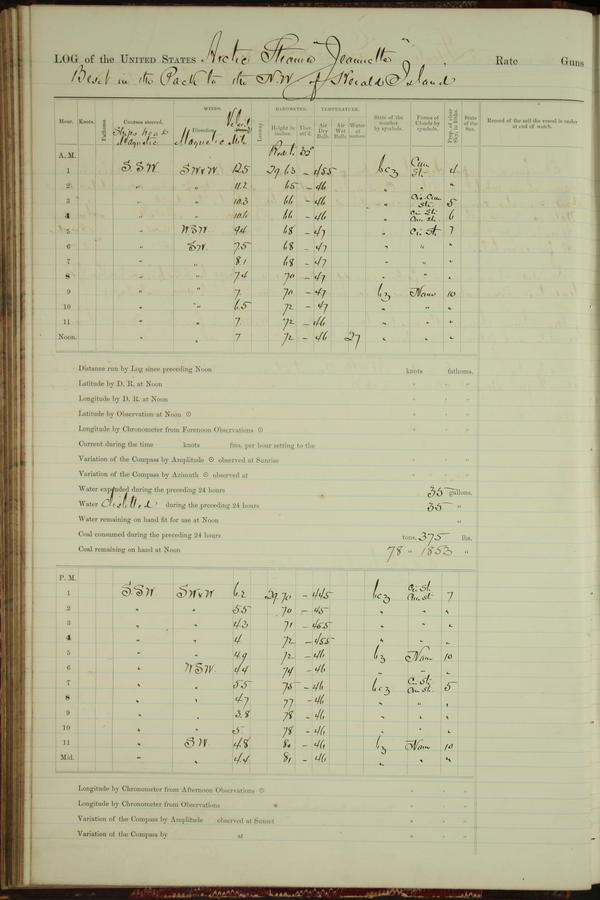 LOG of the UNITED STATES Arctic Steamer "Jeannette" Rate Guns
Beset in the Pack to the NW of Herald Island
Hour. Knots. Fathoms. Courses steered. WINDS. Leeway. BAROMETER. TEMPERATURE. State of the weather by symbols. Forms of Clouds by symbols. Prop. of clear Sky, in 10ths. State of the Sea. Record of the sail the vessel is under at end of watch.
Ships head Magnetic Direction. Magnetic Velocity Mls Height in inches. Ther. att'd. Air Dry Bulb. Air Wet Bulb. Water at
A. M.
1 SSW SW x W 12.5 29.63 - 45.5 bcz Cum St. 4
2 " " 11.2 65 - 46 " " "
3 " " 10.3 66 - 46 " Ci-Cum St. 5
4 " " 10.6 66 - 46 " Ci. St. Cum. St. 6
5 " WSW 9.4 68 - 47 " Ci. St. 7
6 " SW. 7.5 68 - 47 " " "
7 " " 8.1 68 - 47 " " "
8 " " 7.4 70 - 47 " " "
9 " " 7. 70 - 47 bz None 10
10 " " 6.5 72 - 47 " " "
11 " " 7. 72 - 46 " " "
Noon. " " 7 72 - 46 27 " " "
Distance run by Log since preceding Noon knots fathoms.
Latitude by D. R. at Noon " " "
Longitude by D. R. at Noon " " "
Latitude by Observation at Noon ⊙ " " "
Longitude by Chronometer from Forenoon Observations ⊙ " " "
Current during the time knots fms. per hour setting to the
Variation of the Compass by Amplitude ⊙ observed at Sunrise " " "
Variation of the Compass by Azimuth ⊙ observed at " " "
Water expended during the preceding 24 hours 35 gallons.
Water distilled during the preceding 24 hours 35 "
Water remaining on hand fit for use at Noon "
Coal consumed during the preceding 24 hours tons. 375 lbs.
Coal remaining on hand at Noon 78 " 1853 "
P. M.
1 SSW SW x W 6.2 29.70 - 44.5 bcz Ci. St. Cum. St. 7
2 " " 5.5 70 - 45 " " "
3 " " 4.3 71 - 45.5 " " "
4 " " 4 72 - 45.5 " " "
5 " " 4.9 72 - 46 bz None 10
6 " WSW. 4.4 74 - 46 " " "
7 " " 5.5 75 - 46 bcz Ci. St. Cum St. 5
8 " " 4.7 77 - 46 " " "
9 " " 3.8 78 - 46 " " "
10 " " 5 78 - 46 " " "
11 " SW 4.8 80 - 46 bz None 10
Mid. " " 4.4 81 - 46 " " "
Longitude by Chronometer from Afternoon Observations ⊙ " " "
Longitude by Chronometer from Observations " " "
Variation of the Compass by Amplitude observed at Sunset " " "
Variation of the Compass by at " " "